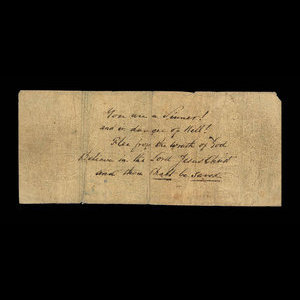 You are a Sinner!
and in danger of Hell!
Flee from the wrath of God
Believe in the Lord Jesus Christ
and thou shalt be saved